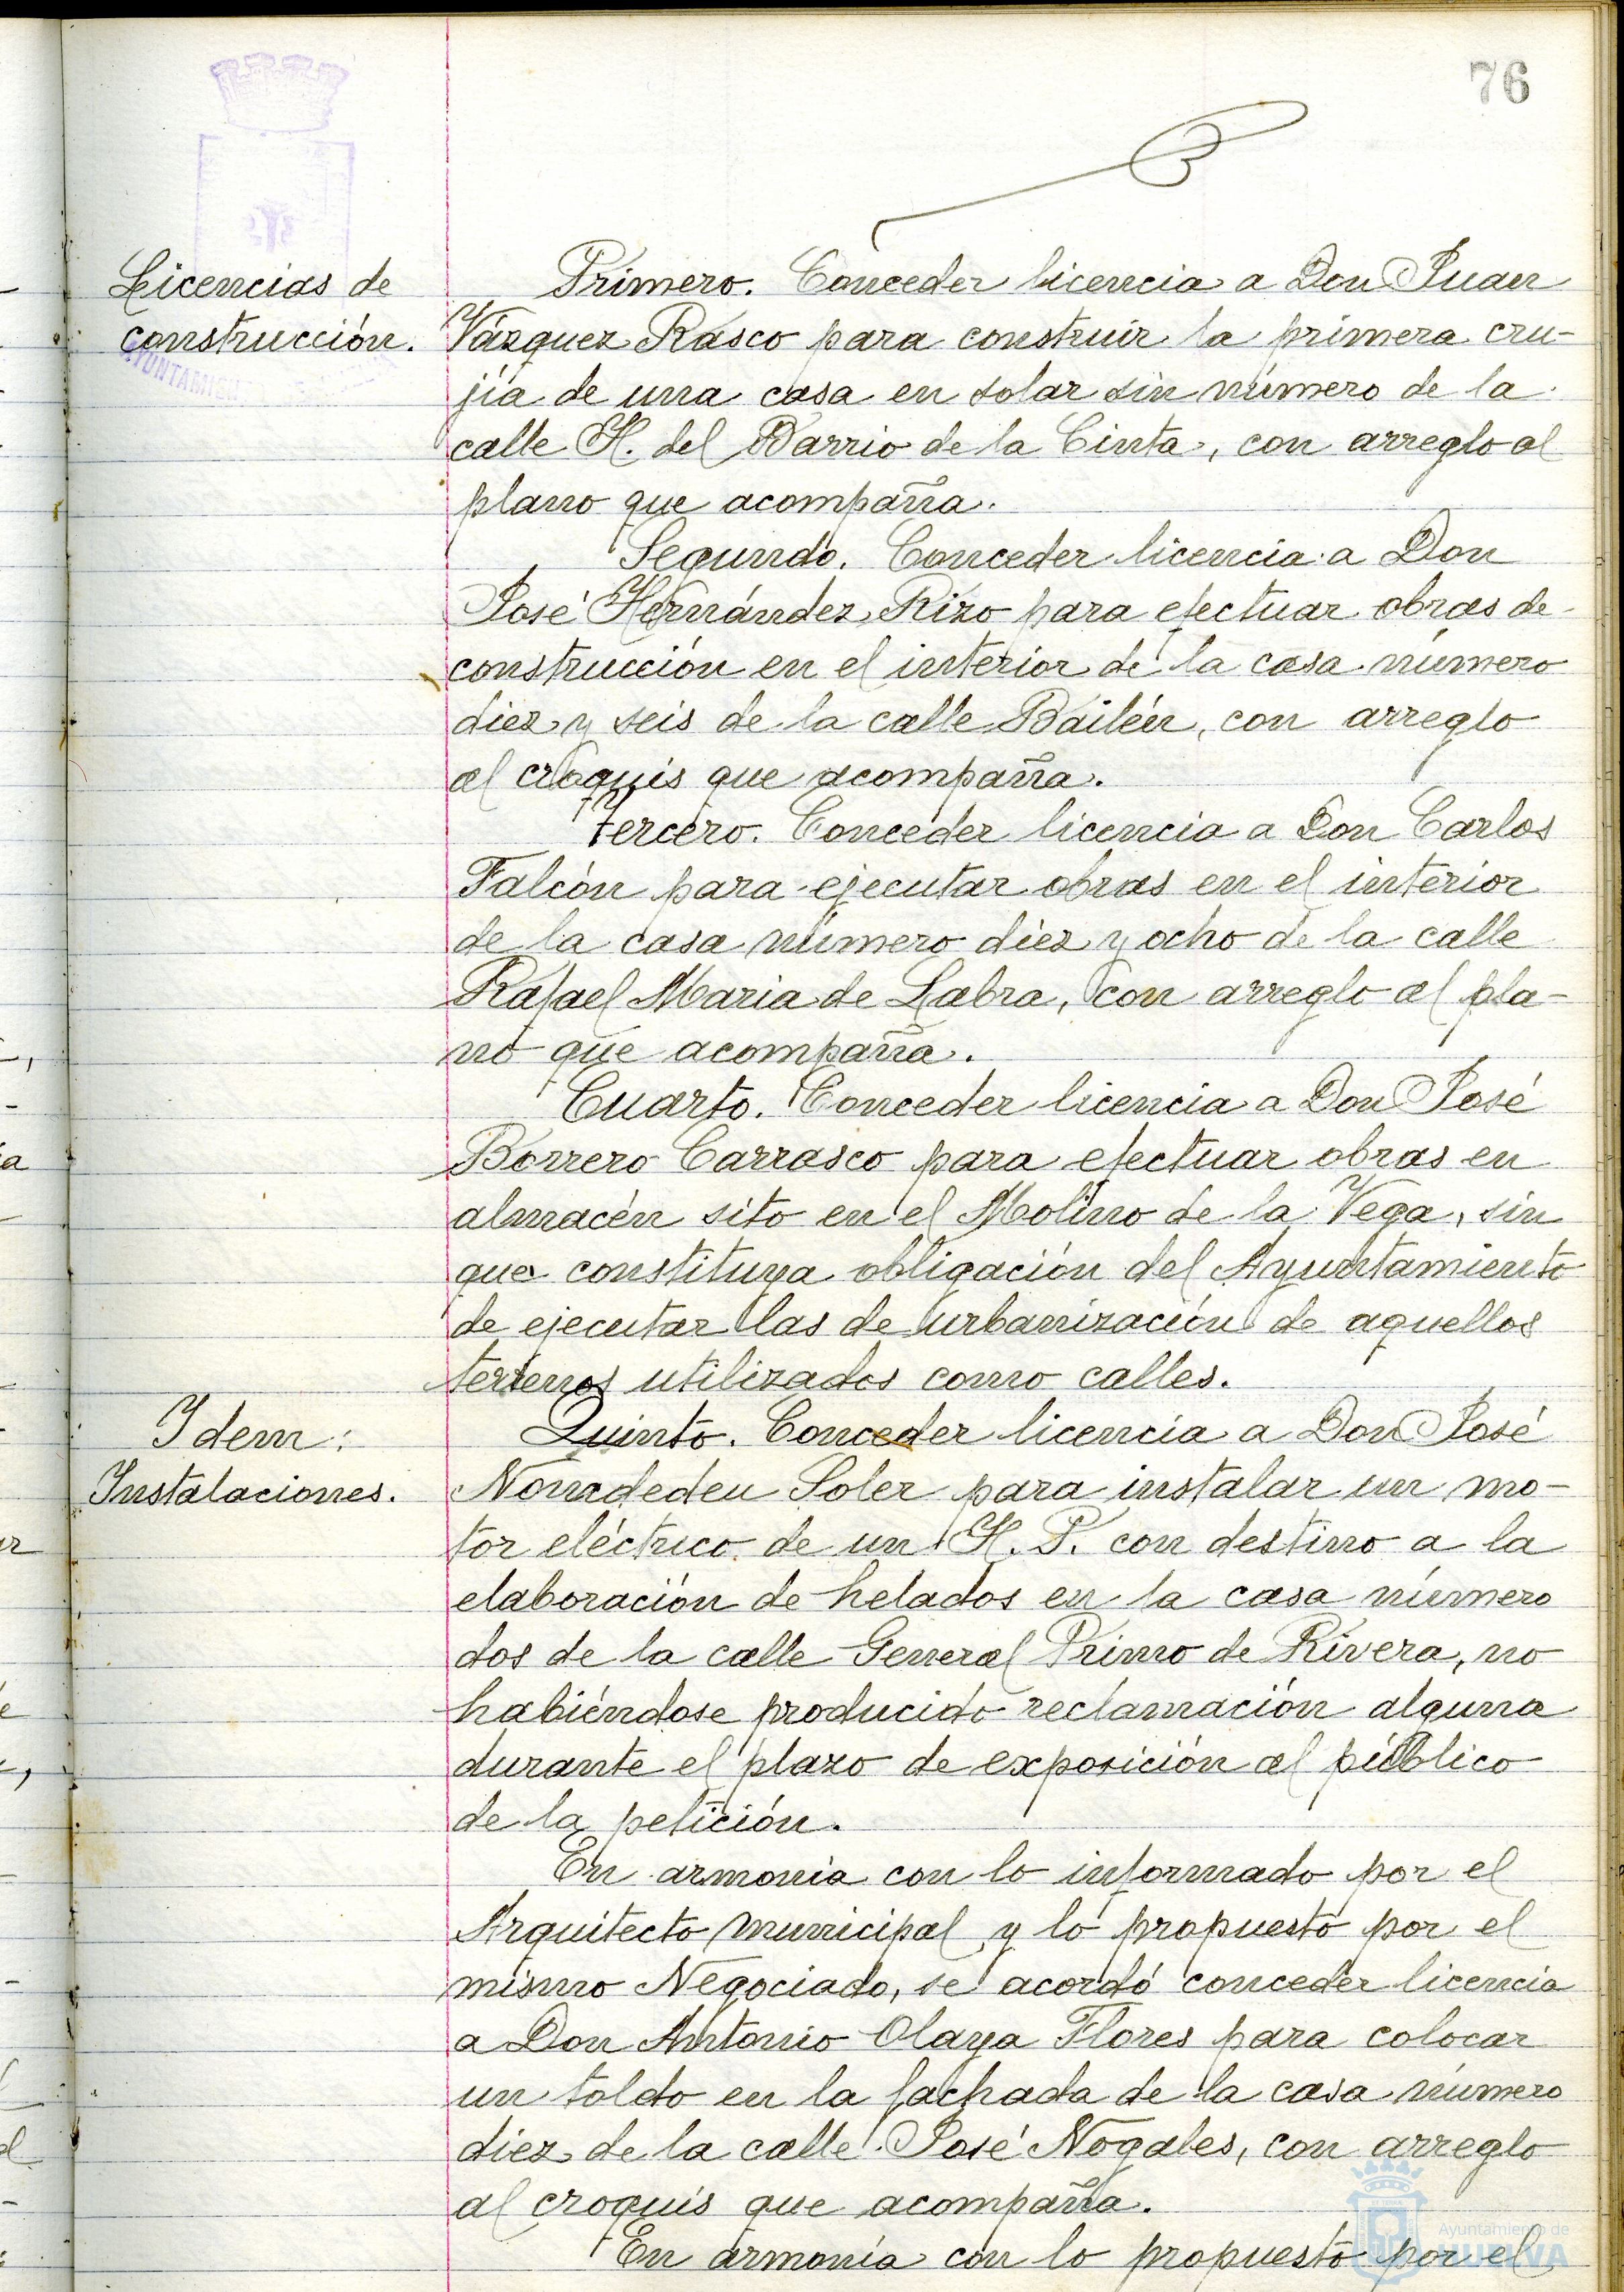 76
Licencias de
construcción.
Primero. Conceder licencia a Don Juan
Vázquez Rasco para construir la primera cru-
jía de una casa en solar sin número de la
calle H. del Barrio de la Cinta, con arreglo al
plano que acompaña.
Segundo. Conceder licencia a Don
José Hernández Rizo para efectuar obras de
construcción en el interior de la casa número
diez y seis de la calle Bailén, con arreglo
al croquis que acompaña.
Tercero. Conceder licencia a Don Carlos
Falcón para ejecutar obras en el interior
de la casa número diez y ocho de la calle
Rafael Maria de Labra, con arreglo al pla-
no que acompaña.
Cuarto. Conceder licencia a Don José
Borrero Carrasco para efectuar obras en
almacén sito en el Molino de la Vega, sin
que constituya obligación del Ayuntamiento
de ejecutar las de urbanización de aquellos
terrenos utilizados como calles.
Idem:
Instalaciones.
Quinto. Conceder licencia a Don José
Nomdedeu Soler para instalar un mo-
tor eléctrico de un H. P. con destino a la
elaboración de helados en la casa número
dos de la calle General Primo de Rivera, no
habiéndose producido reclamación alguna
durante el plazo de exposición al público
de la petición.
En armonía con lo informado por el
Arquitecto municipal y lo propuesto por el
mismo Negociado, se acordó conceder licencia
a Don Antonio Olaya Flores para colocar
un toldo en la fachada de la casa número
diez de la calle José Nogales, con arreglo
al croquis que acompaña.
En armonía con lo propuesto por el
Ayuntamiento de
HUELVA